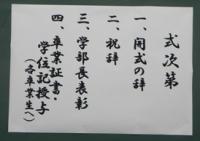 式次第
一、開式の辞
二、祝辞
三、学部長表彰
四、卒業証書・
学位記授与
(各卒業生へ)